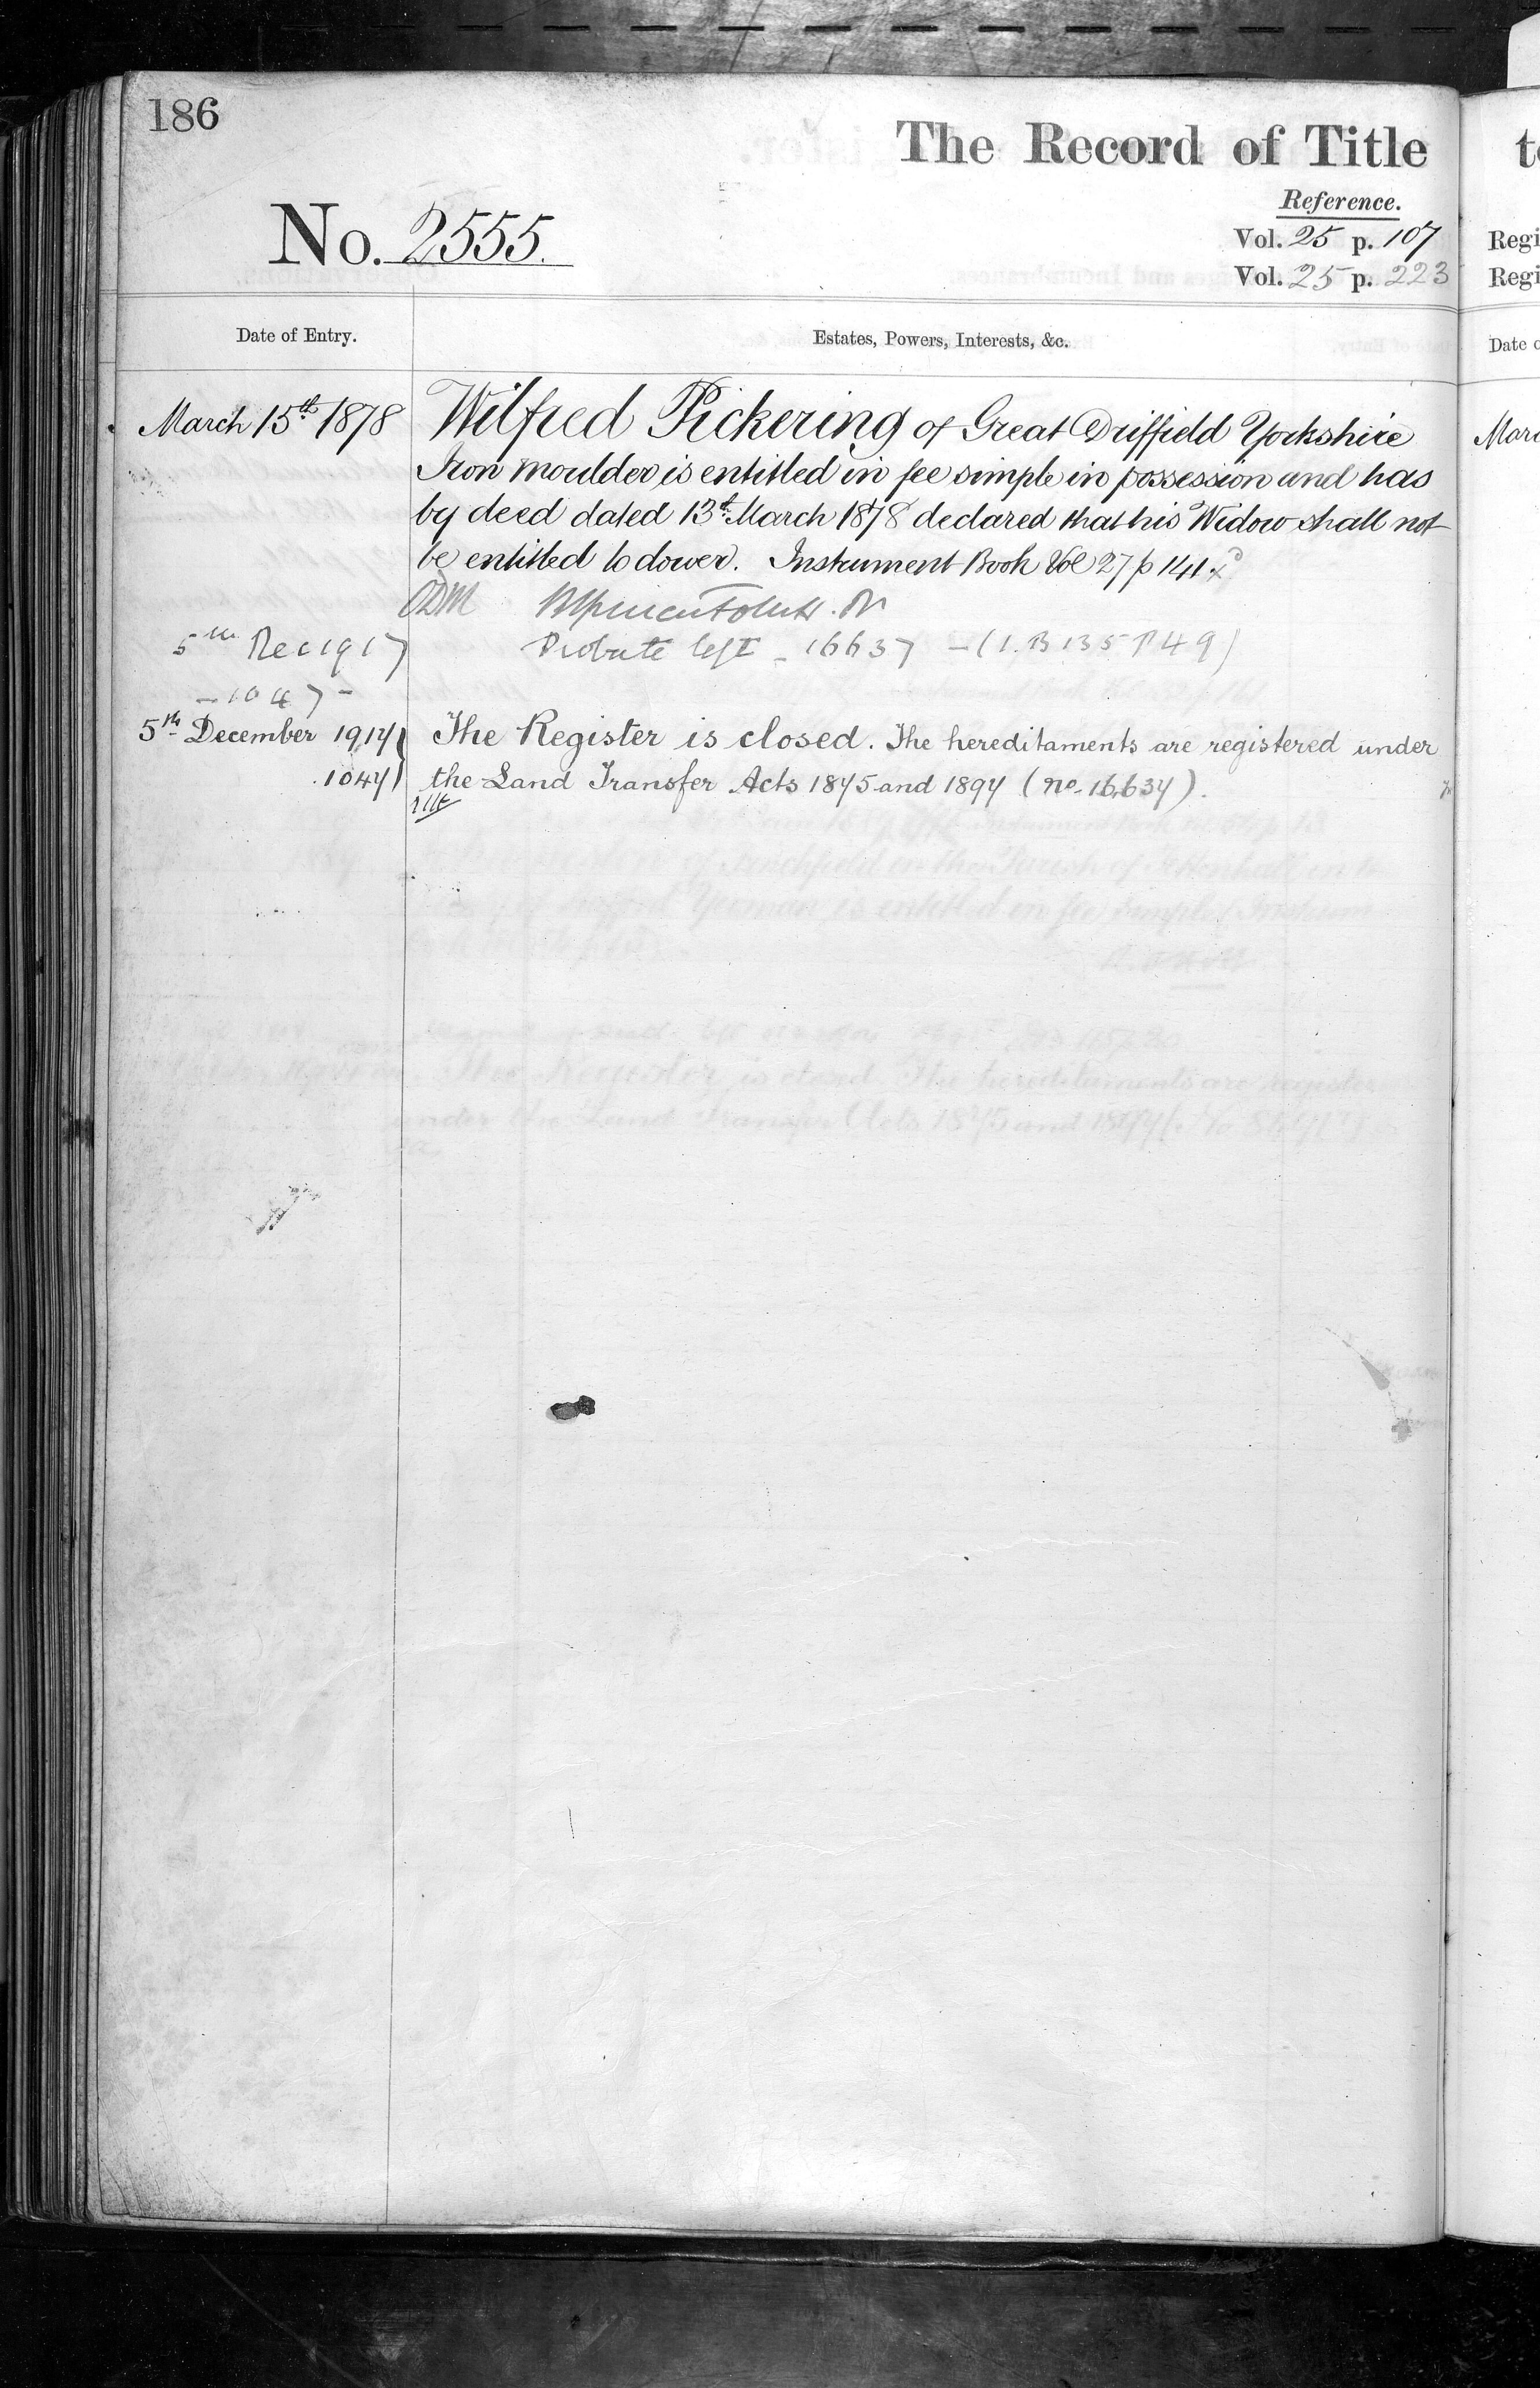 186
The Record of Title
Reference.
No. 2555.
Vol. 25 p. 107
Vol. 25 p. 223
Date of Entry.
Estates, Powers, Interests, &c.
March 15th 1878
Wilfred Pickering of Great Driffield Yorkshire
Iron moulder is entitled in fee simple in possession and has
by deed dated 13th March 1878 declared that his Widow shall not
be entitled to dower. Instrument Book Vol 27 p 141
5th Dec 1917
Probate left - 16637 - (I.B 135 P 49)
- 1047 -
5th December 1917
The Register is closed. The hereditaments are registered under
1047
the Land Transfer Acts 1875 and 1897 (no. 16,637).
Regi
Regi
Date o